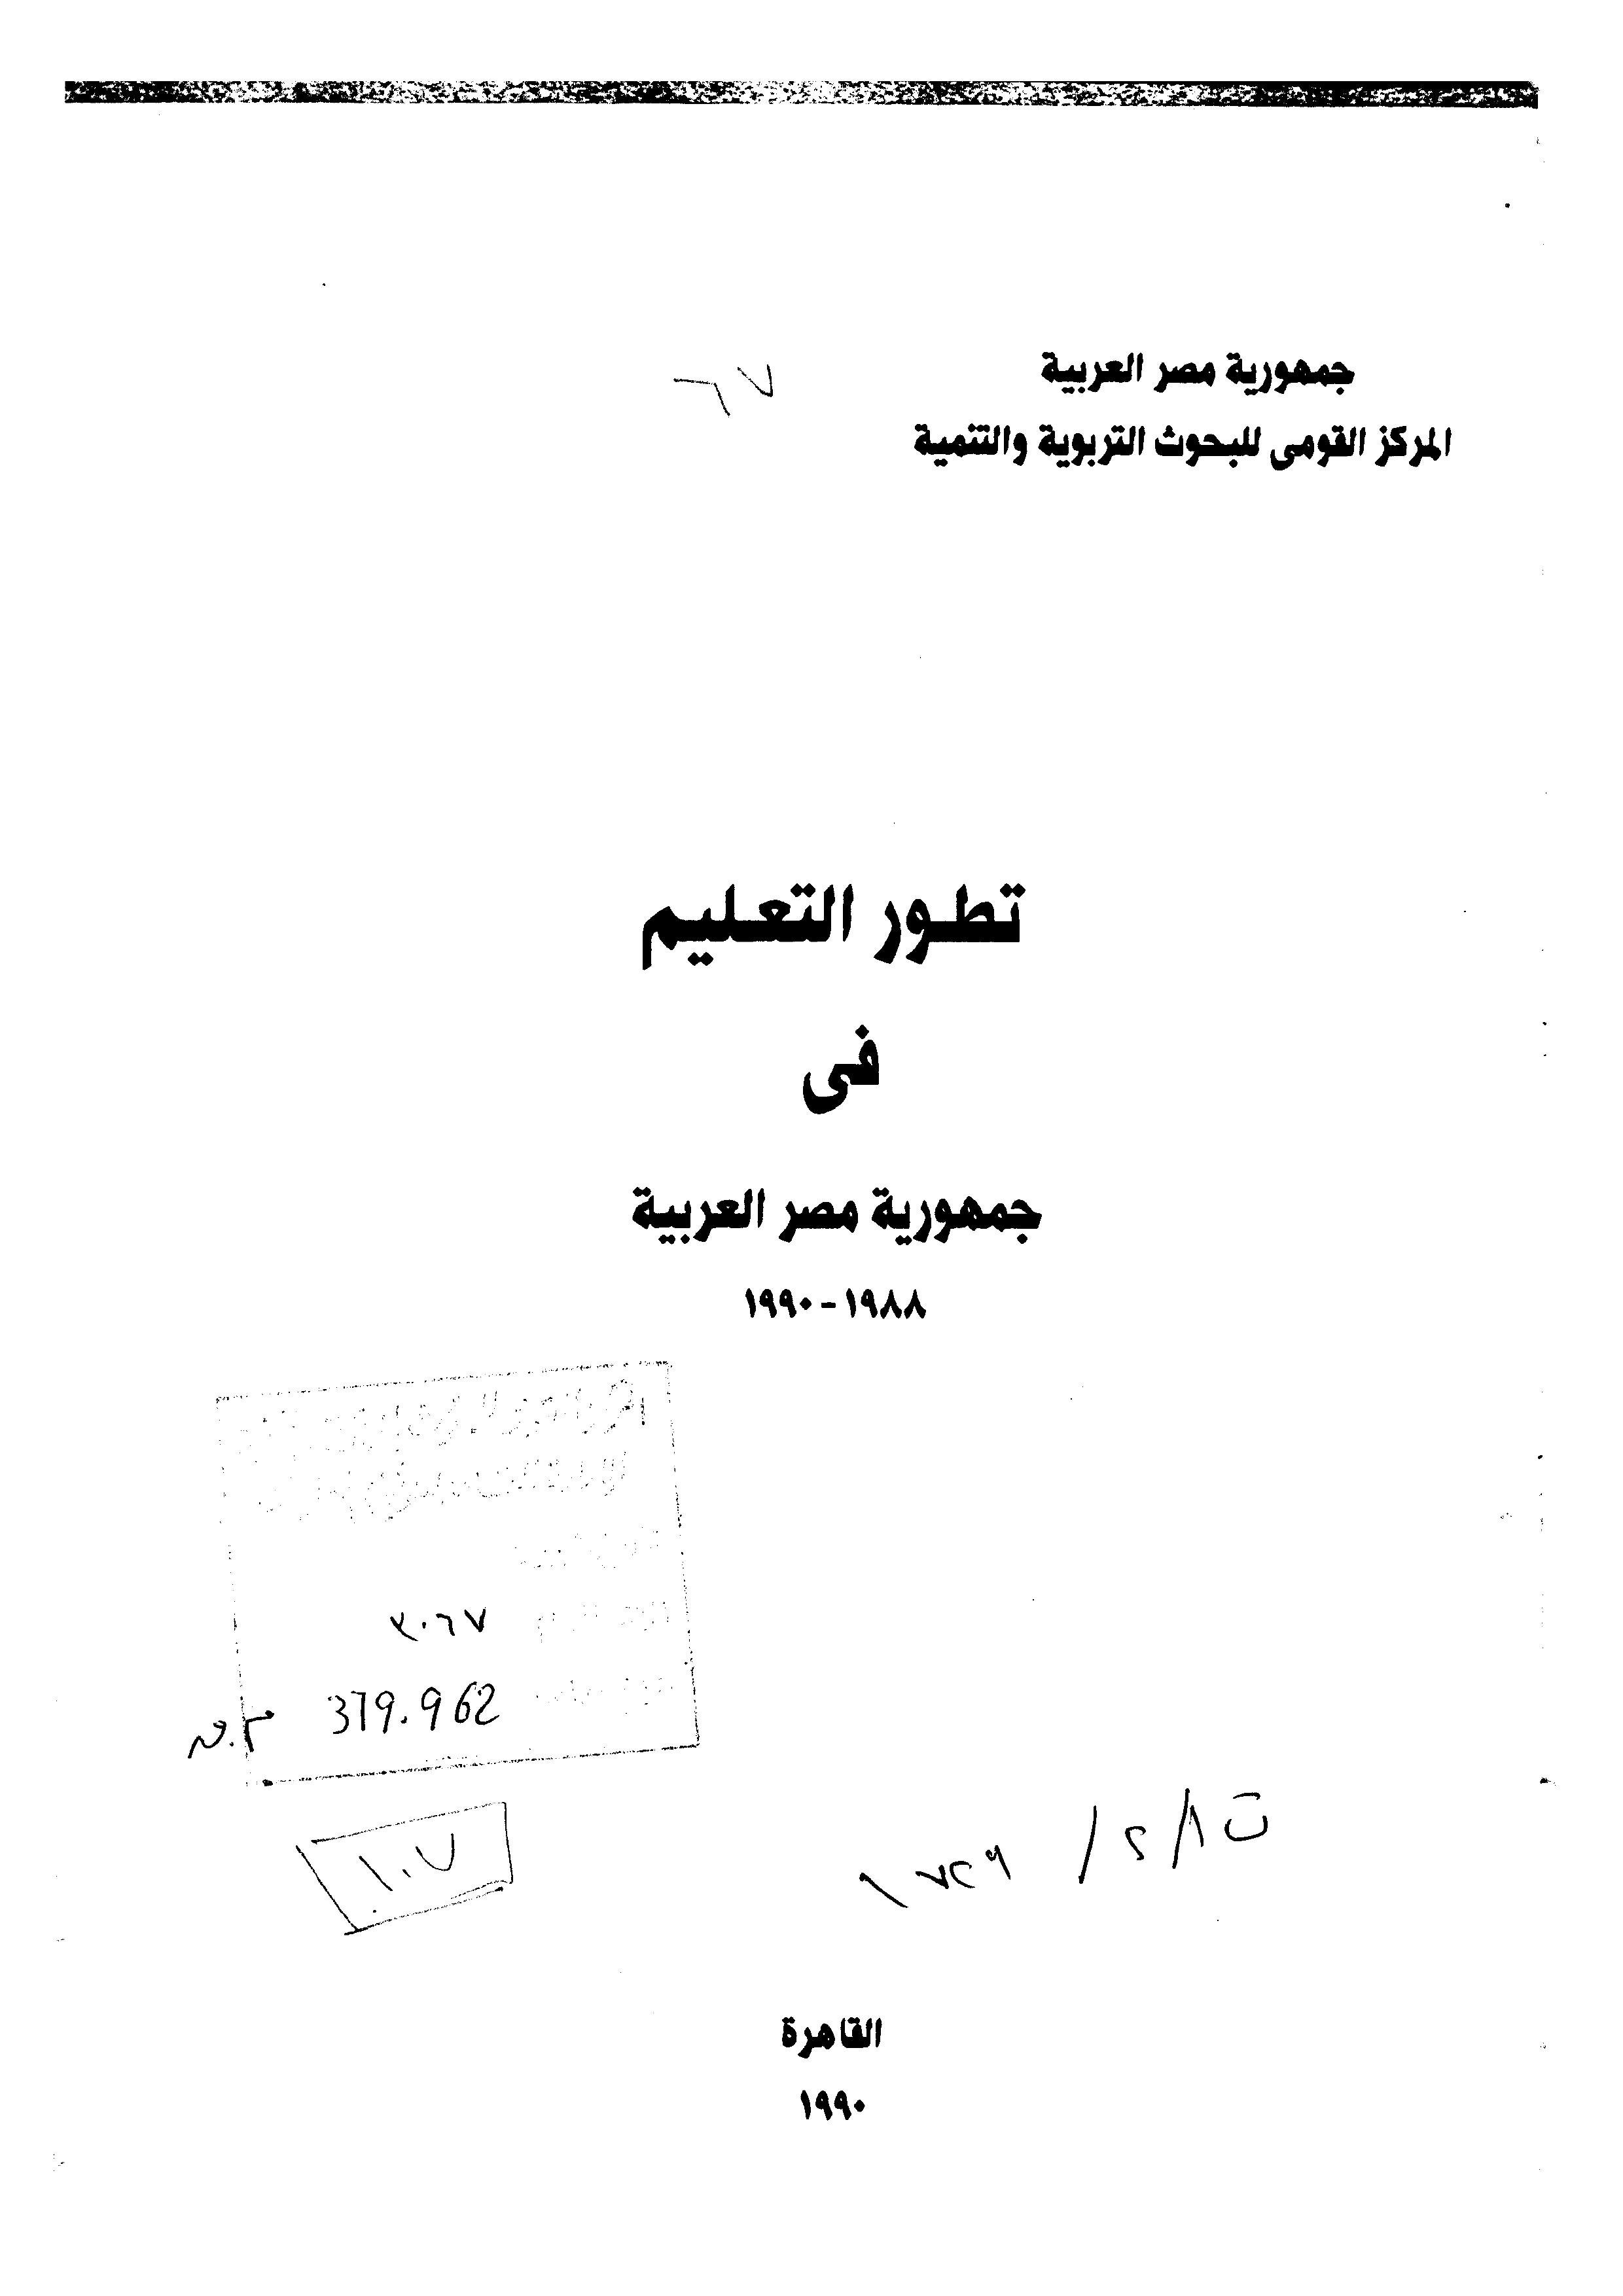 جمهورية مصر العربية
٦٧
المركز القومى للبحوث التربوية والتنمية
تطور التعليم
فى
جمهورية مصر العربية
١٩٨٨-١٩٩٠
٣٠٦٧
379.962
١٠٧
القاهرة
١٩٩٠